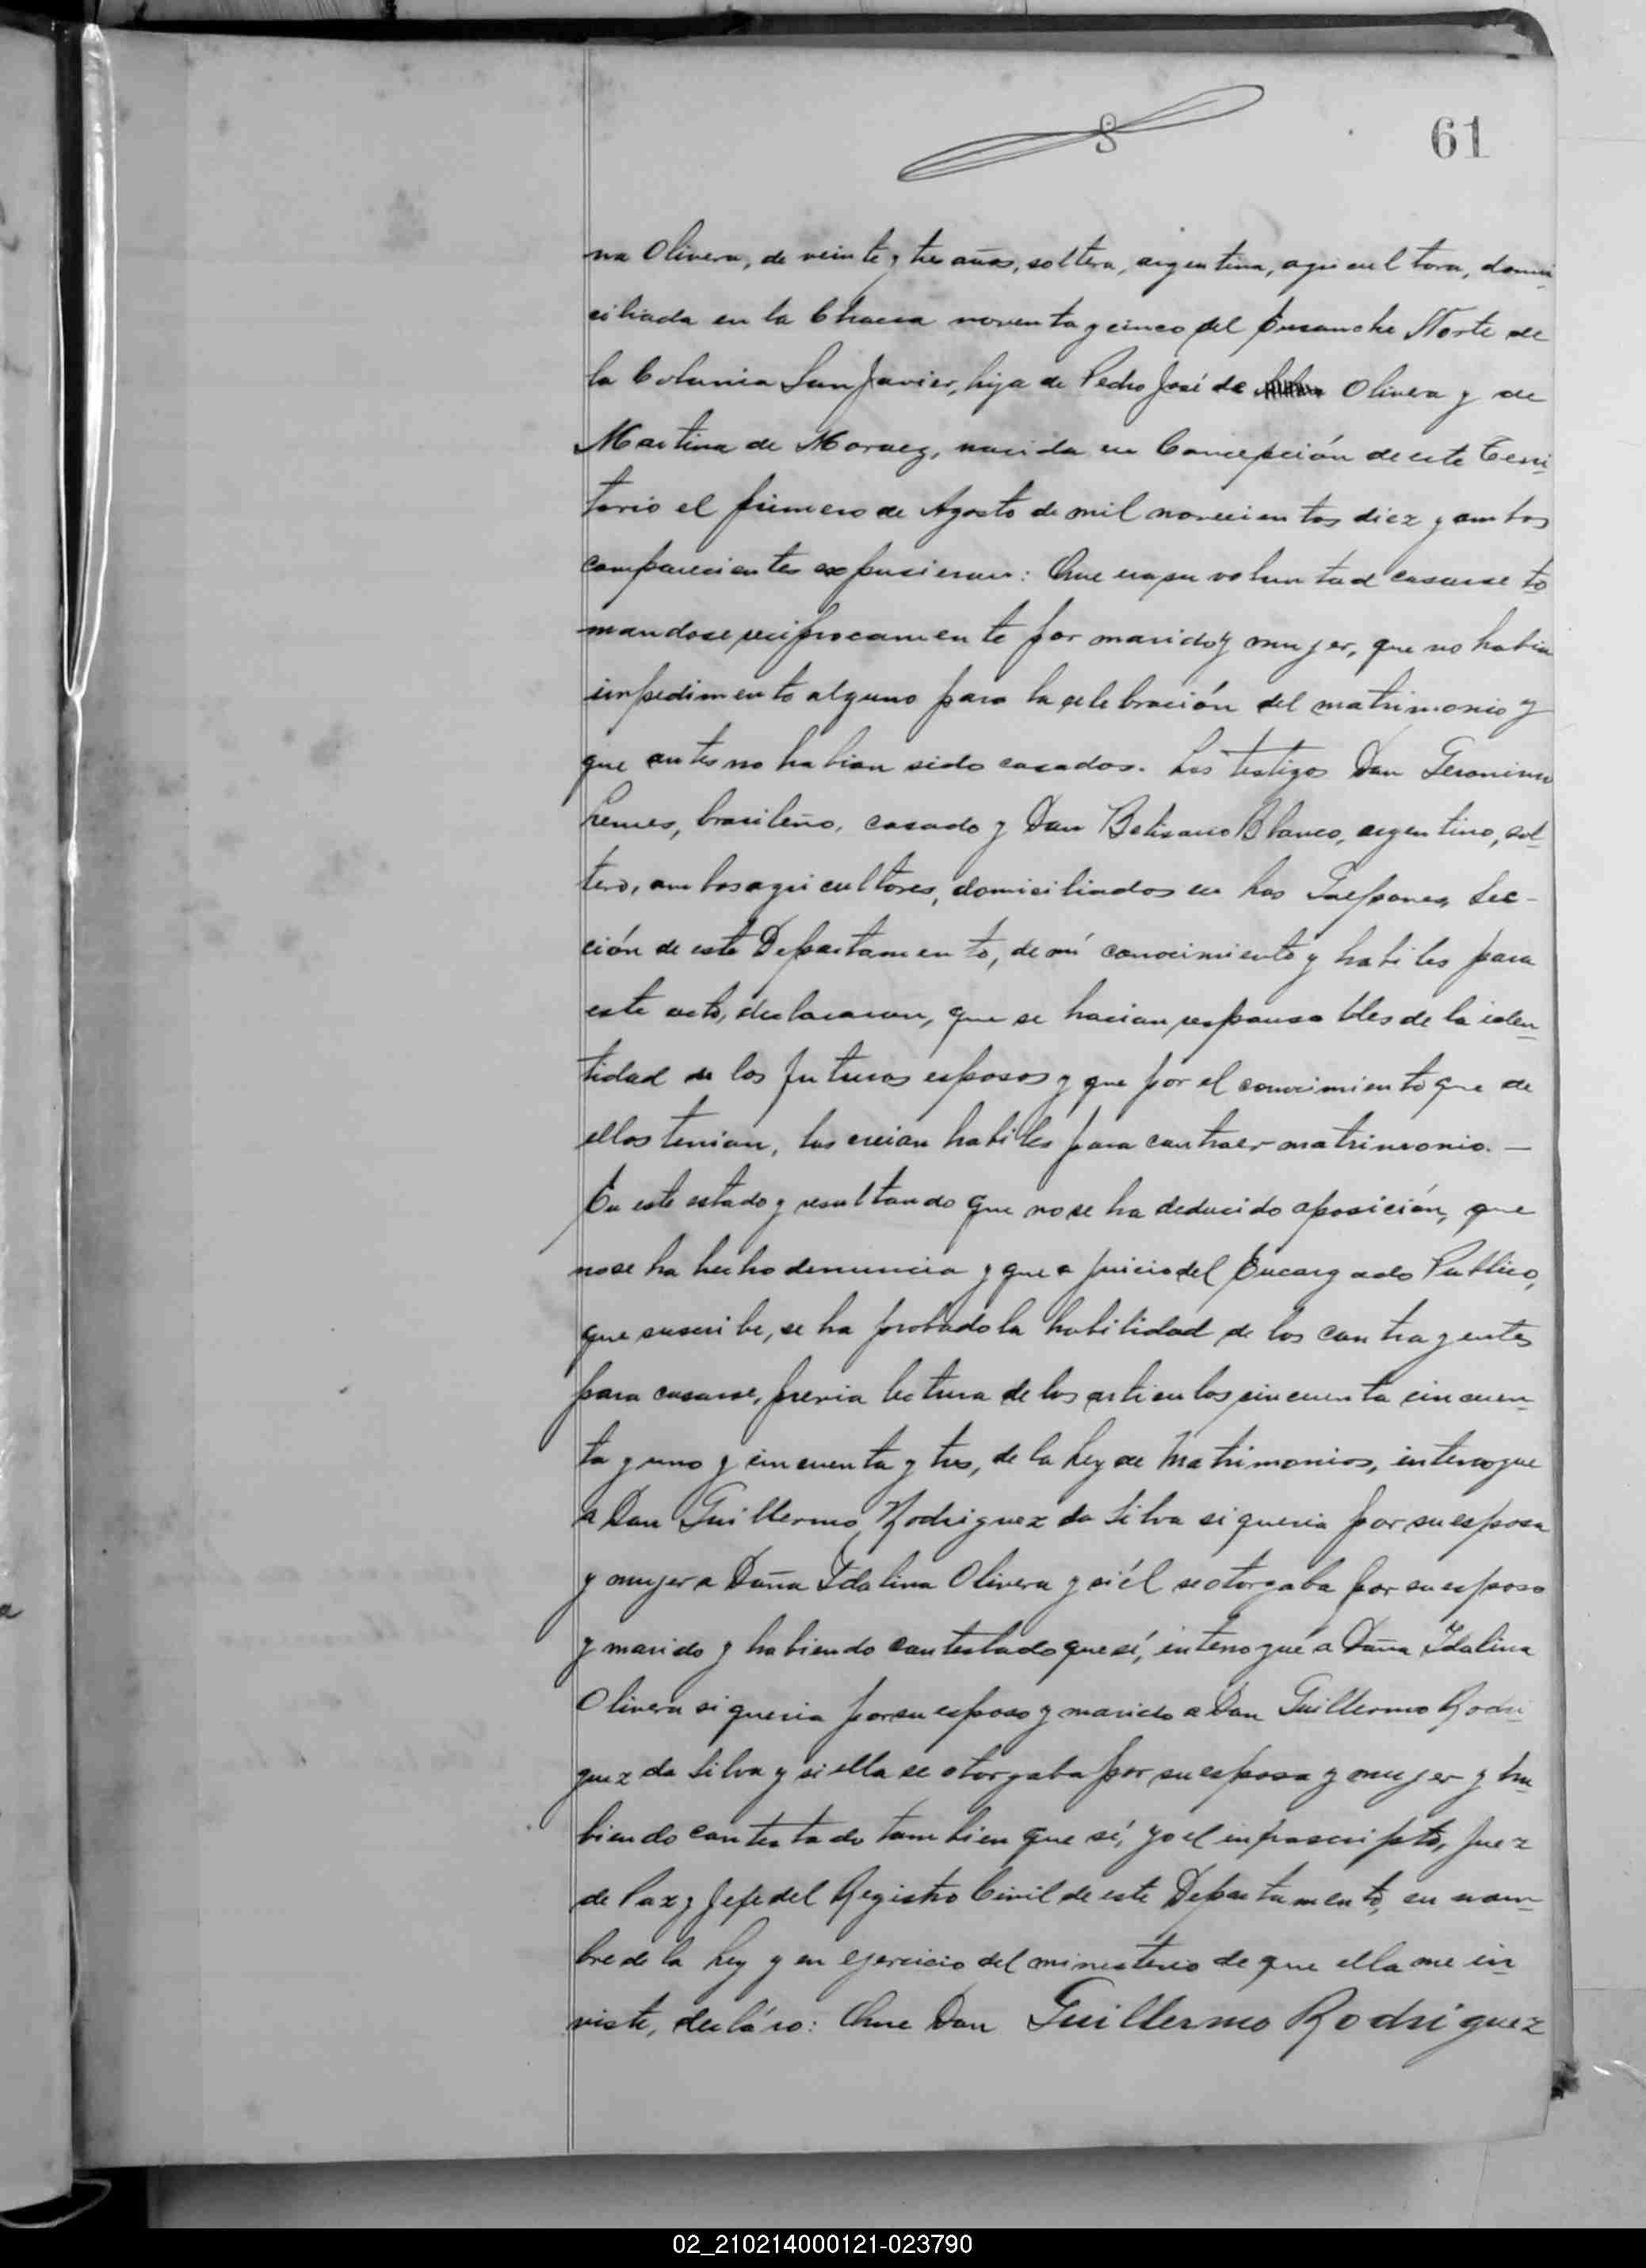 61
na Olivera, de veinte y tres años, soltera, argentina, agricultora, domi-
ciliada en la Chacra noventa y cinco del Ensanche Norte de
la Colonia San Javier, hija de Pedro José de Olivera y de
Martina de Moraez, nacida en Concepción de este Terri-
torio el primero de Agosto de mil novecientos diez y ambos
comparecientes expusieron: Que era su voluntad casarse to
mandose reciprocamente por marido y mujer, que no habia
impedimento alguno para la celebración del matrimonio y
que antes no habian sido casados. Los testigos Don Geronimo
Lemes, brasileño, casado y Don Belisario Blanco, argentino, sol-
tero, ambos agricultores, domiciliados en Los Galpones, Sec-
ción de este Departamento, de mi conocimiento y habiles para
este acto, declararon, que se hacian responsables de la iden-
tidad de los futuros esposos y que por el conocimiento que de
ellos tenian, los creian habiles para contraer matrimonio. —
En este estado y resultando que no se ha deducido oposición, que
no se ha hecho denuncia y que a juicio del Encargado Publico,
que suscribe, se ha probado la habilidad de los contrayentes
para casarse, previa lectura de los articulos cincuenta cincuen-
ta y uno y cincuenta y tres, de la Ley de Matrimonios, interrogue
a Don Guillermo Rodriguez da Silva si queria por su esposa
y mujer a Doña Idalina Olivera y si él se otorgaba por su esposo
y marido y habiendo contestado que sí, interrogué a Doña Idalina
Olivera si queria por su esposo y marido a Don Guillermo Rodri-
guez da Silva y si ella se otorgaba por su esposa y mujer y ha-
biendo contestado tambien que sí, yo el infrascripto, Juez
de Paz y Jefe del Registro Civil de este Departamento, en nom-
bre de la Ley y en ejercicio del ministerio de que ella me in-
viste, decláro: Que Don Guillermo Rodriguez
02_210214000121-023790